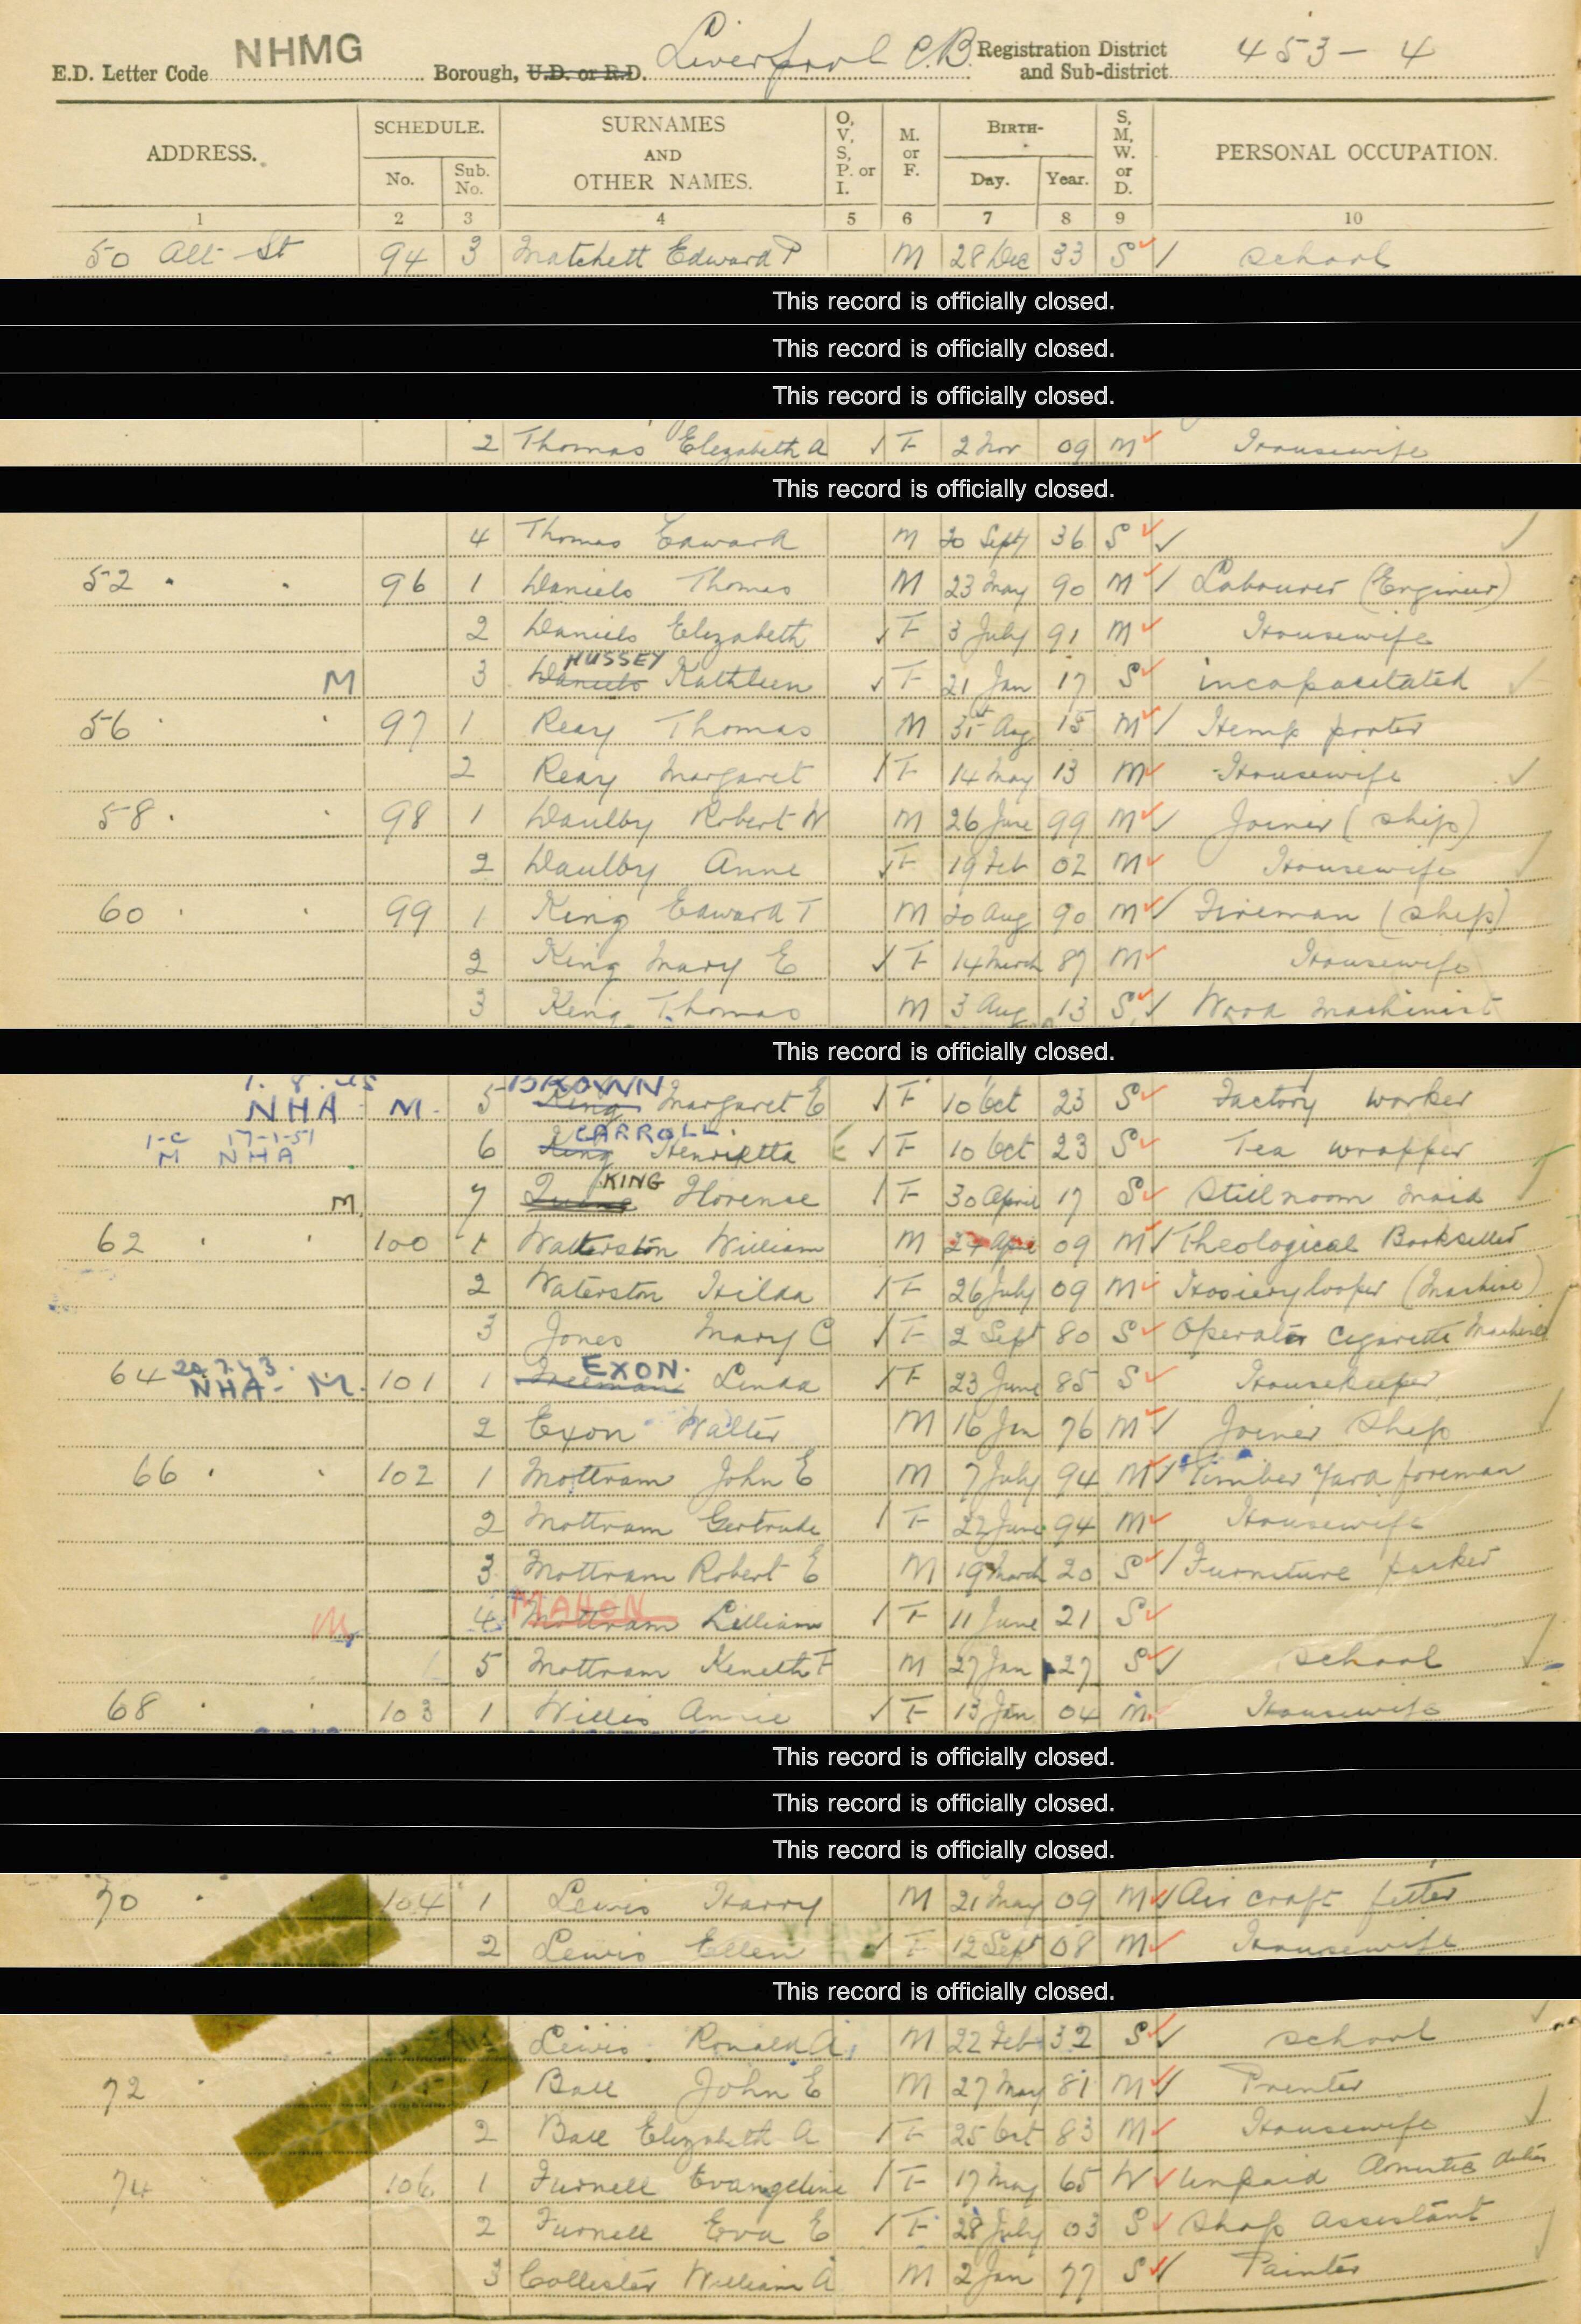 E.D. Letter Code NHMG Borough, U.D. or R.D. Liverpool C.B. Registration District and Sub-district 453-4
ADDRESS. SCHEDULE. No. Sub. No. SURNAMES AND OTHER NAMES. O, V, S, P. or I. M. or F. BIRTH- Day. Year. S, M, W. or D. PERSONAL OCCUPATION.
1 2 3 4 5 6 7 8 9 10
50 Alt St 94 3 Matchett Edward P M 28 Dec 33 S School
This record is officially closed.
This record is officially closed.
This record is officially closed.
2 Thomas Elizabeth A F 2 Nov 09 M Housewife
This record is officially closed.
4 Thomas Edward M 20 Sept 36 S
52 96 1 Daniels Thomas M 23 May 90 M Labourer (Engineer)
2 Daniels Elizabeth F 3 July 91 M Housewife
HUSSEY
M 3 Daniels Kathleen F 21 Jan 17 S incapacitated
56 97 1 Reay Thomas M 31 Aug 15 M Hemp porter
2 Reay Margaret F 14 May 13 M Housewife
58 98 1 Daulby Robert W M 26 June 99 M Joiner (ship)
2 Daulby Anne F 19 Feb 02 M Housewife
60 99 1 King Edward T M 20 Aug 90 M Fireman (ship)
2 King Mary E F 14 March 87 M Housewife
3 King Thomas M 3 Aug 13 S Wood machinist
This record is officially closed.
1. 8. 45 BROWN
NHA M. 5 King Margaret E F 10 Oct 23 S Factory worker
1-c 17-1-51 CARROLL.
M NHA 6 King Henrietta F 10 Oct 23 S Tea wrapper
KING
M. 7 Florence F 30 April 17 S Stillroom maid
62 100 1 Watterston William M 27 April 09 M Theological Bookseller
2 Waterston Hilda F 26 July 09 M Hosiery looper (Machine)
3 Jones Mary C F 2 Sept 80 S Operator Cigarette Machine
20.7.43. EXON.
64 NHA - M. 101 1 Freeman Linda F 23 June 85 S Housekeeper
2 Exon Walter M 16 Jan 76 M Joiner Ship
66 102 1 Mottram John E M 7 July 94 M Timber Yard foreman
2 Mottram Gertrude F 22 June 94 M Housewife
3 Mottram Robert E M 19 March 20 S Furniture packer
MAHON
M 4 Mottram Lilliam F 11 June 21 S
5 Mottram Keneth F M 27 Jan 27 S School
68 103 1 Willis Annie F 13 Jan 04 M Housewife
This record is officially closed.
This record is officially closed.
This record is officially closed.
70 104 1 Lewis Harry M 21 May 09 M Air craft fitter
2 Lewis Ellen F 12 Sept 08 M Housewife
This record is officially closed.
Lewis Ronald A M 22 Feb 32 S School
72 1 Ball John E M 27 May 81 M Printer
2 Ball Elizabeth A F 25 Oct 83 M Housewife
74 106 1 Furnell Evangeline F 17 May 65 W Unpaid Domestic duties
2 Furnell Eva E F 28 July 03 S Shop Assistant
3 Collister William A M 2 Jan 77 S Painter